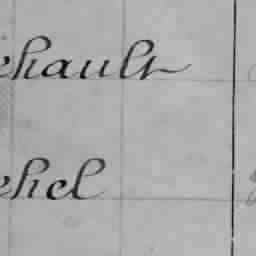 ehault
ehel